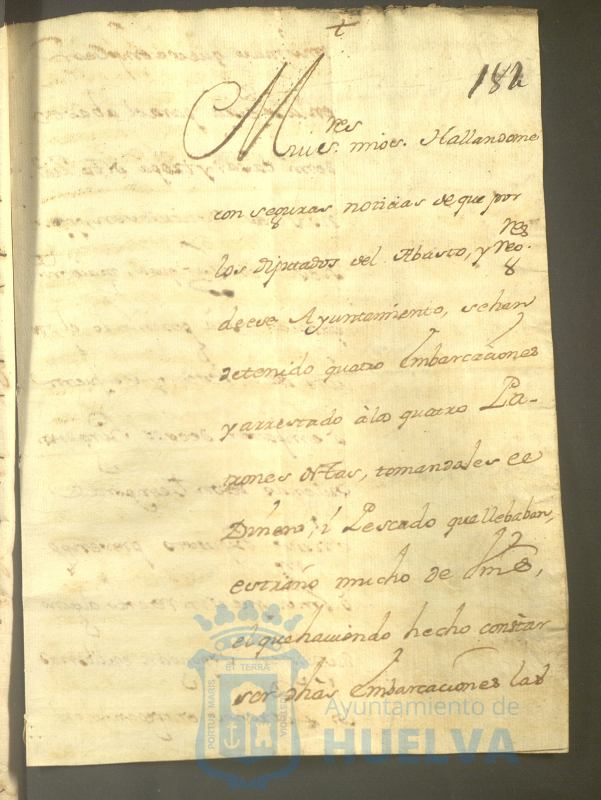 +
182
Mui S.res mios. Hallandome
con seguras noticias de que por
los Diputados del Abasto, y
de ese Ayuntamiento, se han
detenido quatro Embarcaciones
y arrestado à los quatro Pa-
trones dhas, tomandoles el
Dinero, i Pescado que llebaban,
estraño mucho de Vms,
el que haviendo hecho constar
ser dhas Embarcaciones las
PORTUS MARIS
ET TERRÆ
CUSTODIA
Ayuntamiento de
HUELVA